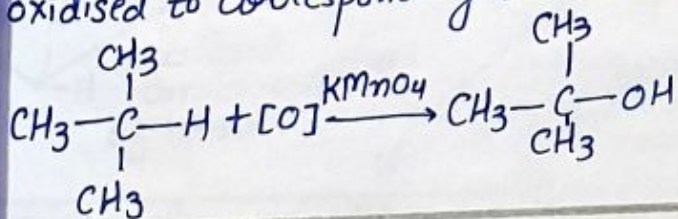 oxidised to
CH3 CH3
CH3—C—H + [O] KMnO4 → CH3—C—OH
CH3
CH3